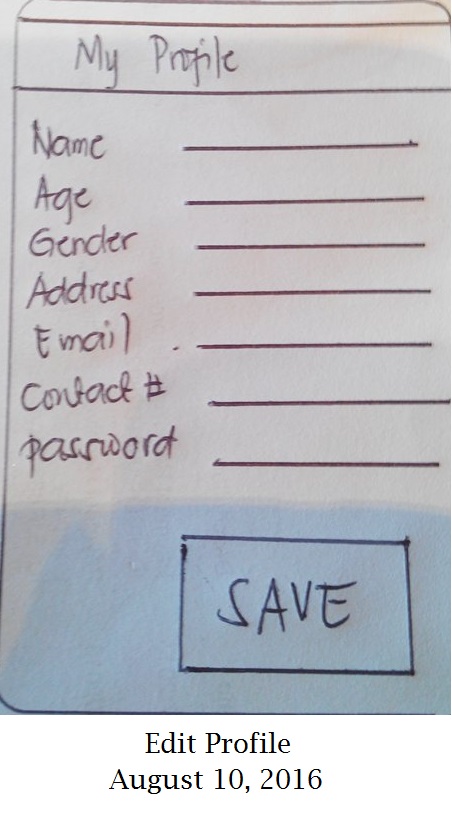 My Profile
Name
Age
Gender
Address
Email
Contact #
password
SAVE
Edit Profile
August 10, 2016